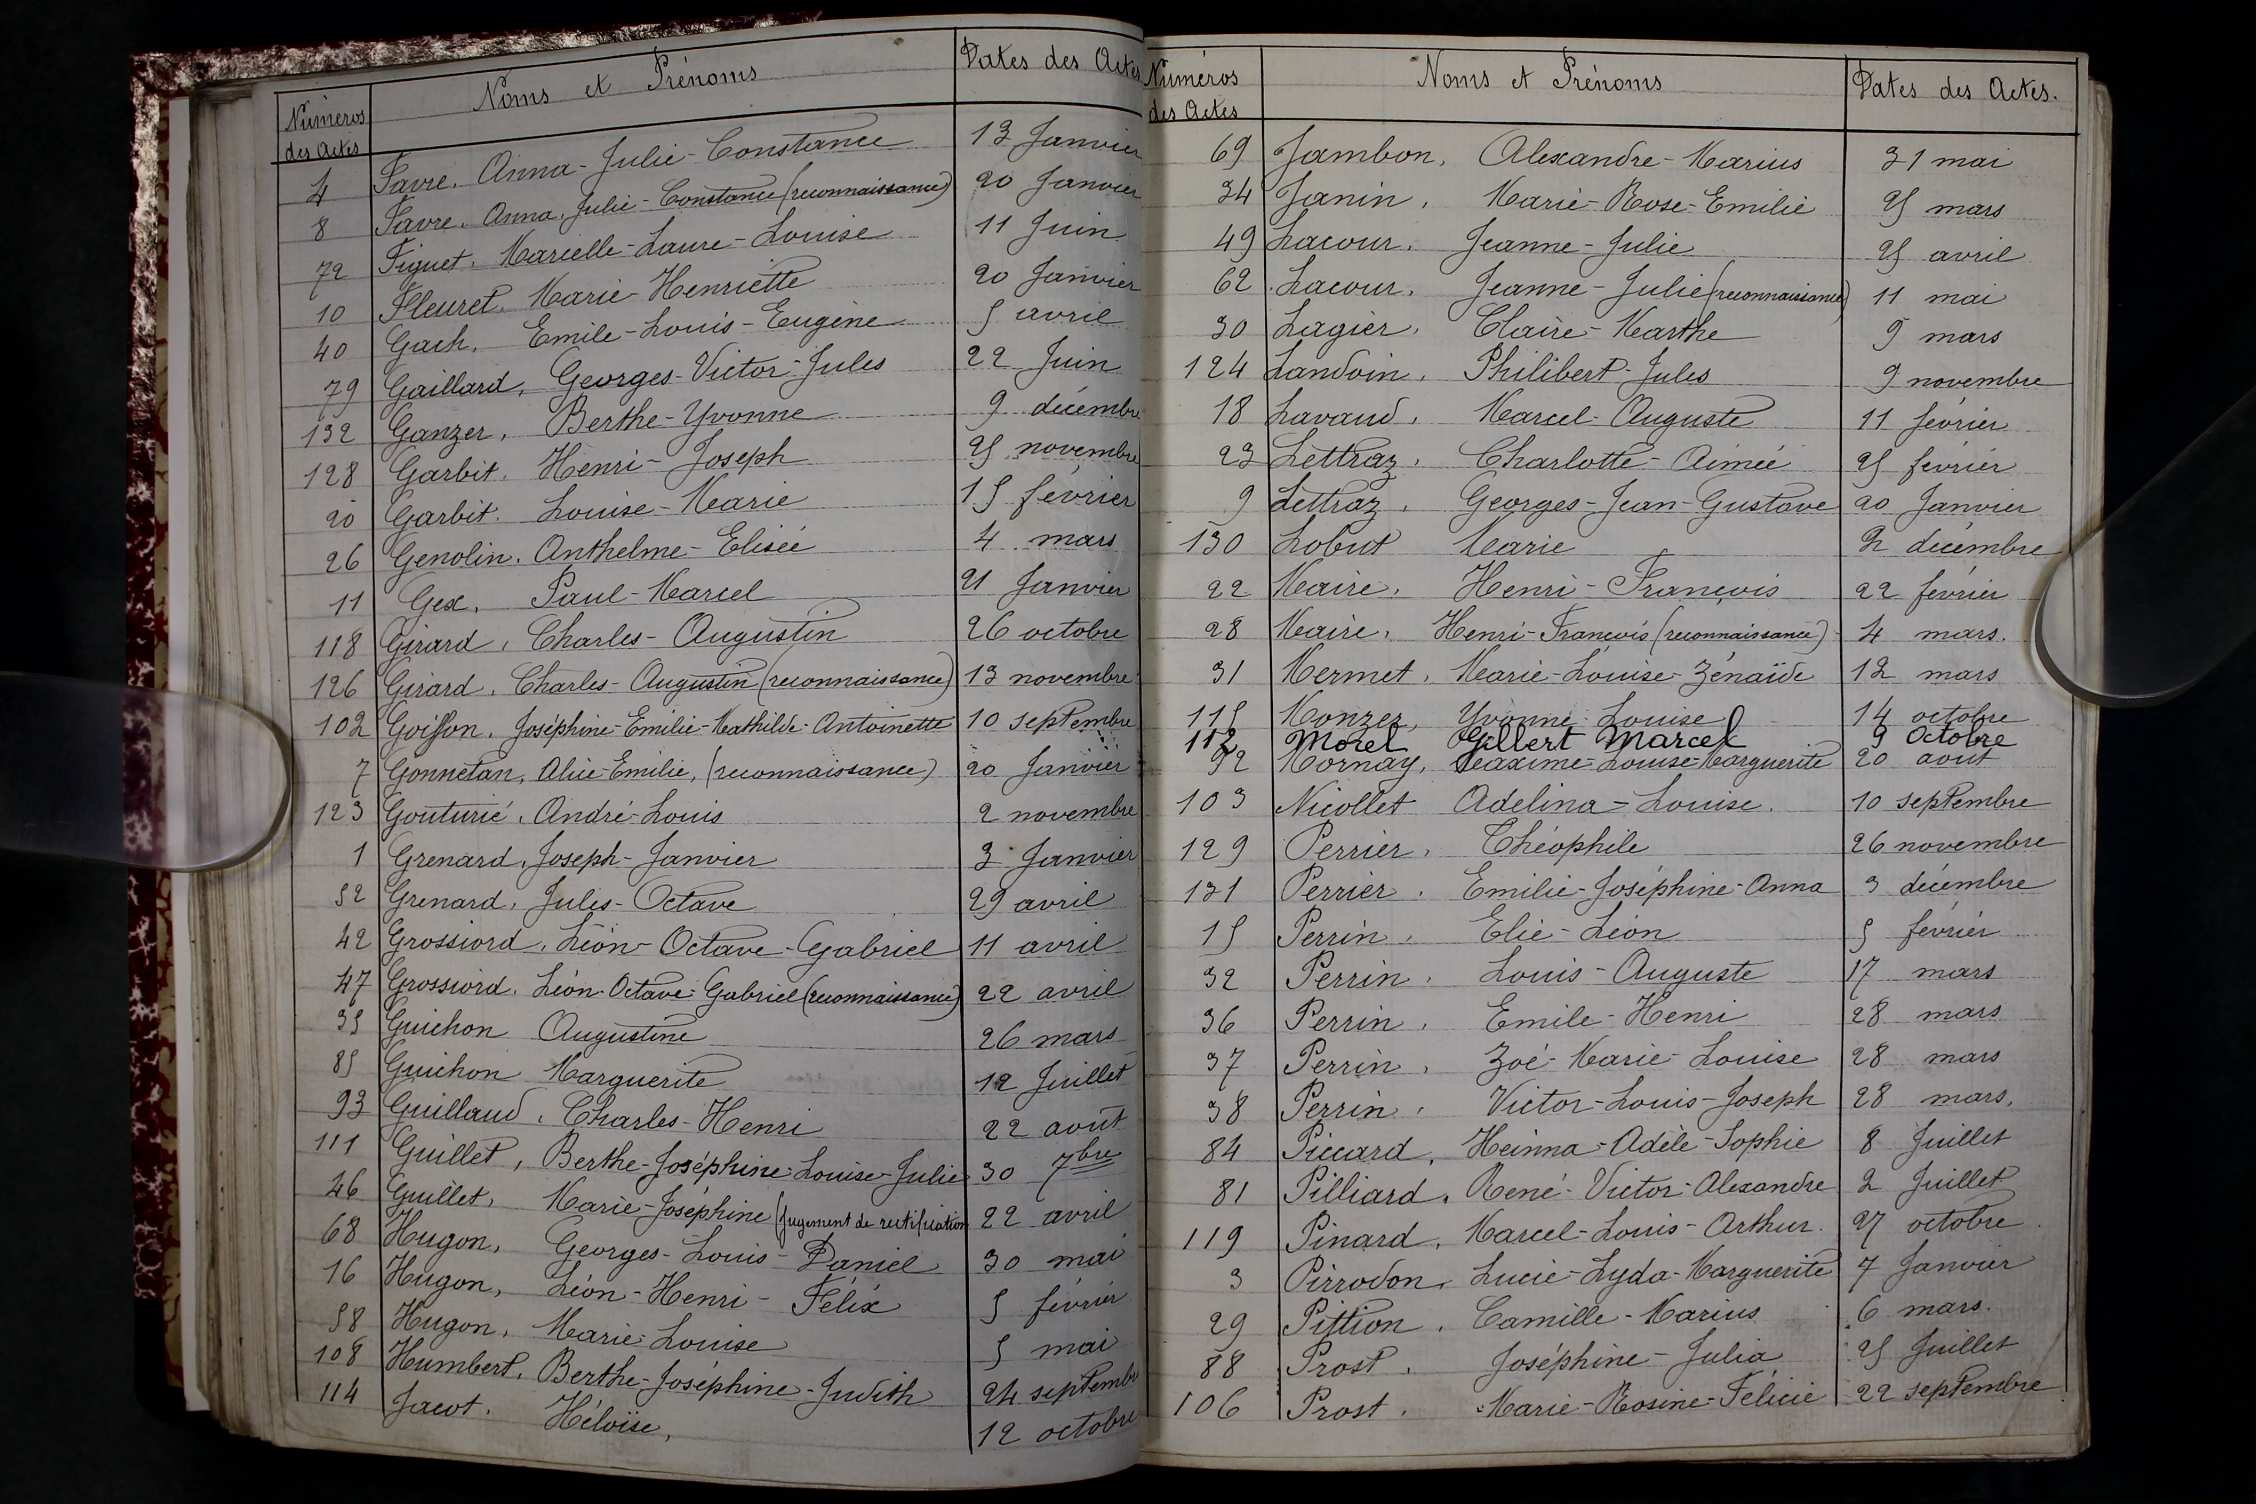 Numéros des Actes Noms et Prénoms Dates des Actes
4 Favre. Anna-Julie-Constance 13 Janvier
8 Favre. Anna, Julie-Constance (reconnaissance) 20 Janvier
72 Figuet. Marcelle-Laure-Louise 11 Juin
10 Fleuret. Marie-Henriette 20 Janvier
40 Gach. Emile-Louis-Eugène 5 avril
79 Gaillard, Georges-Victor-Jules 22 Juin
132 Ganzer, Berthe-Yvonne 9 décembre
128 Garbit. Henri-Joseph 25 novembre
20 Garbit. Louise-Marie 15 février
26 Genolin. Anthelme-Elisée 4 mars
11 Gex. Paul-Marcel 21 Janvier
118 Girard, Charles-Augustin 26 octobre
126 Girard. Charles-Augustin (reconnaissance) 13 novembre
102 Goiffon. Joséphine-Emilie-Mathilde-Antoinette 10 septembre
7 Gonnetan, Alice-Emilie, (reconnaissance) 20 Janvier
123 Gouturié, André-Louis 2 novembre
1 Grenard, Joseph-Janvier 3 Janvier
52 Grenard, Jules-Octave 29 avril
42 Grossiord, Léon-Octave-Gabriel 11 avril
47 Grossiord. Léon-Octave-Gabriel (reconnaissance) 22 avril
35 Guichon Augustine 26 mars
85 Guichon Marguerite 12 Juillet
93 Guillaud, Charles-Henri 22 août
111 Guillet, Berthe-Joséphine-Louise-Julie 30 7bre
46 Guillet, Marie-Joséphine (Jugement de rectification 22 avril
68 Hugon, Georges-Louis-Daniel 30 mai
16 Hugon, Léon-Henri-Félix 5 février
58 Hugon, Marie-Louise 5 mai
108 Humbert, Berthe-Joséphine-Judith 24 septembre
114 Jacot. Héloïse, 12 octobre
Numéros des Actes Noms et Prénoms Dates des Actes.
69 Jambon, Alexandre-Marius 31 mai
34 Janin, Marie-Rose-Emilie 25 mars
49 Lacour. Jeanne-Julie 25 avril
62 Lacour. Jeanne-Julie (reconnaissance) 11 mai
30 Lagier, Claire-Marthe 9 mars
124 Landoin, Philibert-Jules 9 novembre
18 Lavaud, Marcel-Auguste 11 février
23 Lettraz, Charlotte-Aimée 25 février
9 Lettraz, Georges-Jean-Gustave 20 Janvier
130 Lobut Marie 2 décembre
22 Maire. Henri-François 22 février
28 Maire. Henri-François (reconnaissance) 4 mars.
31 Mermet, Marie-Louise-Zénaïde 12 mars
115 Monzer, Yvonne-Louise 14 octobre
112 Morel Gilbert Marcel 9 Octobre
92 Mornay, Maxime-Louise-Marguerite 20 août
103 Nicollet Adelina-Louise. 10 septembre
129 Perrier, Théophile 26 novembre
131 Perrier. Emilie-Joséphine-Anna 3 décembre
15 Perrin, Elie-Léon 5 février
32 Perrin. Louis-Auguste 17 mars
36 Perrin, Emile-Henri 28 mars
37 Perrin, Zoé-Marie-Louise 28 mars
38 Perrin. Victor-Louis-Joseph 28 mars.
84 Piccard, Heinna-Adèle-Sophie 8 Juillet
81 Pilliard, René-Victor-Alexandre 2 Juillet
119 Pinard, Marcel-Louis-Arthur. 27 octobre
3 Pirrodon, Lucie-Lyda-Marguerite 7 Janvier
29 Pittion, Camille-Marius 6 mars.
88 Prost. Joséphine-Julia 25 Juillet
106 Prost. Marie-Rosine-Félicie 22 septembre